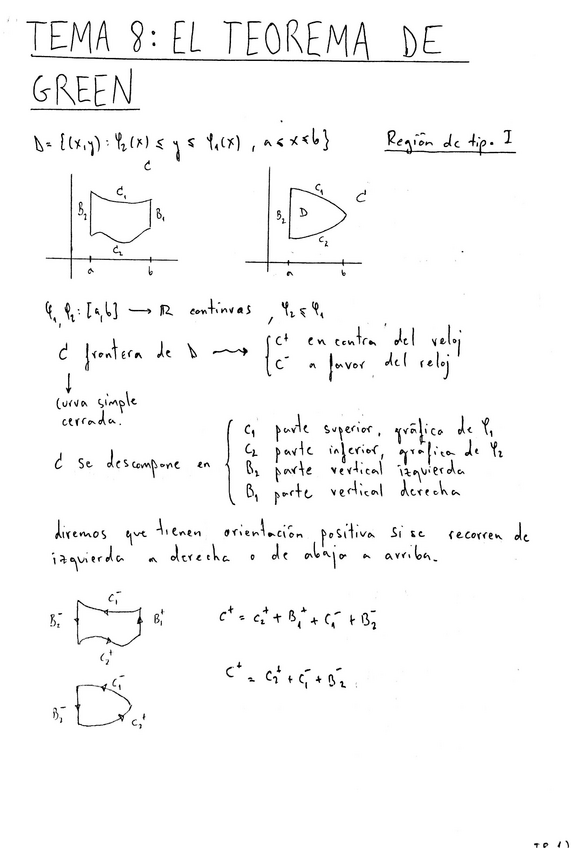 TEMA 8: EL TEOREMA DE
GREEN
D = {(x,y) : φ₂(x) ≤ y ≤ φ₁(x) , a ≤ x ≤ b}
Región de tipo I
C
C₁
B₂
B₁
C₂
a
b
C₁
C
B₂
D
C₂
a
b
φ₁, φ₂ : [a,b] → ℝ continuas , φ₂ ≤ φ₁
C frontera de D ⟿ { C⁺ en contra del reloj
C⁻ a favor del reloj
↓
Curva simple
cerrada.
C₁ parte superior, gráfica de φ₁
C₂ parte inferior, gráfica de φ₂
C se descompone en {
B₂ parte vertical izquierda
B₁ parte vertical derecha
diremos que tienen orientación positiva si se recorren de
izquierda a derecha o de abajo a arriba.
C₁⁻
B₂⁻
B₁⁺
C₂⁺
C⁺ = C₂⁺ + B₁⁺ + C₁⁻ + B₂⁻
C₁⁻
B₂⁻
C₂⁺
C⁺ = C₂⁺ + C₁⁻ + B₂⁻